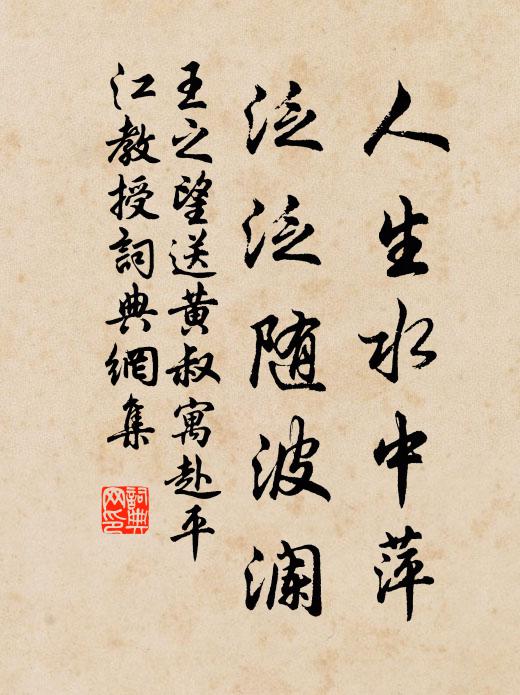 人生水中萍
泛泛随波澜
王之望送黄叔寓赴平
江教授詞典網集
詞典
网印